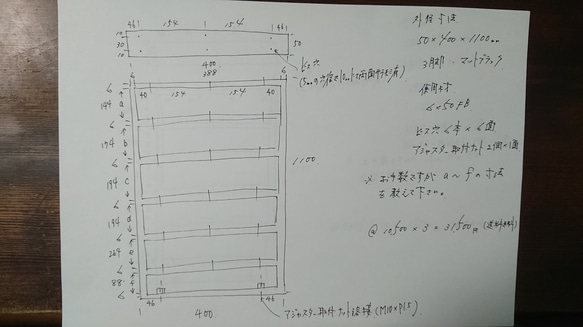 46 154 154 46
10
30
10
50
400
388
ビス穴
6 6
40 154 154 40
6
194 a
6
194 b
6
194 c
6
194 d
6
264 e
6
88 f
6
1100
46 46
400
アジャスター取付ナット溶接 (M10×P1.5)
外径寸法
50×400×1100mm
3月末 マットブラック
使用材
6×50FB
ビス穴 6本×6面
アジャスター取付ナット2個×1面
※ お手数ですが a〜fの寸法
を教えて下さい。
@ 10,500 × 3 = 31,500円 (送料無料)